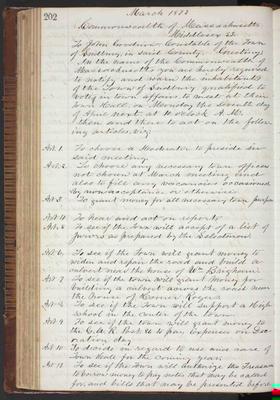 202
March 1873
Commonwealth of Massachusetts
Middlesex SS.
To John Goodnow Constable of the Town
of Sudbury in said County, Greeting
In the name of the Commonwealth of
Massachusetts you are hereby required
to notify and warn the inhabitants
of the Town of Sudbury qualified to
vote in town affairs to meet at the
Town Hall, on Monday the seventh day
of April next at 10 o'clock A.M.
then and there to act on the follow
ing articles, viz;
Art. 1. To choose a Moderator to preside in
said meeting
Art. 2. To choose any necessary town officers
not chosen at March meeting and
also to fill any vacancies occasioned
by nonacceptance or otherwise
Art 3. To grant money for all necessary town purpo
Art 4. To hear and act on reports
Art. 5. To see if the Town will accept of a list of
Jurors as prepared by the Selectmen
Art. 6. To see if the Town will grant money to
widen and repair the road and build a
culvert near the house of Wm Brigham
Art. 7. To see if the town will grant money for
building a culvert across the road near
the house of Rogers
Art. 8. To see if the Town will support a High
school in the center of the town
Art. 9. To see if the town will grant money to
the G.A.R. Post to pay Expenses on Dec
oration day
Art. 10. To decide in regard to use and care of
Town Hall for the coming year
Art. 11. To see if the Town will authorize the Treasurer
to borrow money to pay notes that may be called
for, and bills that may be presented before